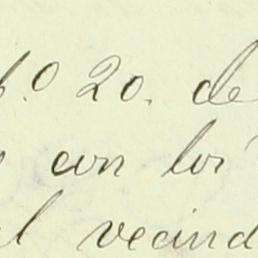 20. de
con los
vecind